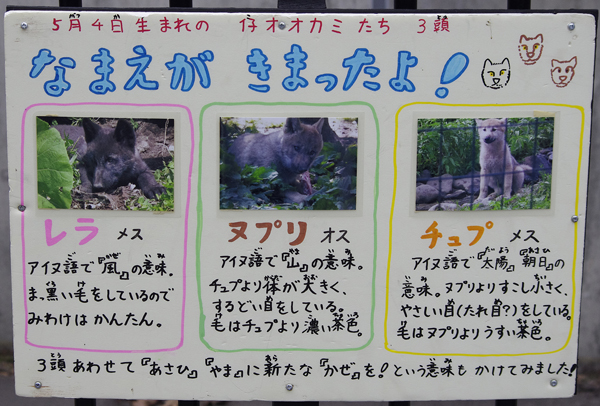 5月4日生まれの 仔オオカミたち 3頭
なまえが きまったよ!
レラ メス
アイヌ語で『風』の意味。
ま、黒い毛をしているので
みわけは かんたん。
ヌプリ オス
アイヌ語で『山』の意味。
チュプより体が大きく、
するどい目をしている。
毛はチュプより濃い茶色。
チュプ メス
アイヌ語で『太陽』『朝日』の
意味。ヌプリよりすこし小さく、
やさしい目(たれ目?)をしている。
毛はヌプリよりうすい茶色。
3頭あわせて『あさひ』『やま』に新たな『かぜ』を!という意味も かけてみました!